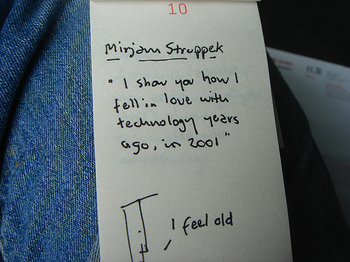 10
Mirjam Struppek
"I show you how I
fell in love with
technology years
ago, in 2001"
I feel old